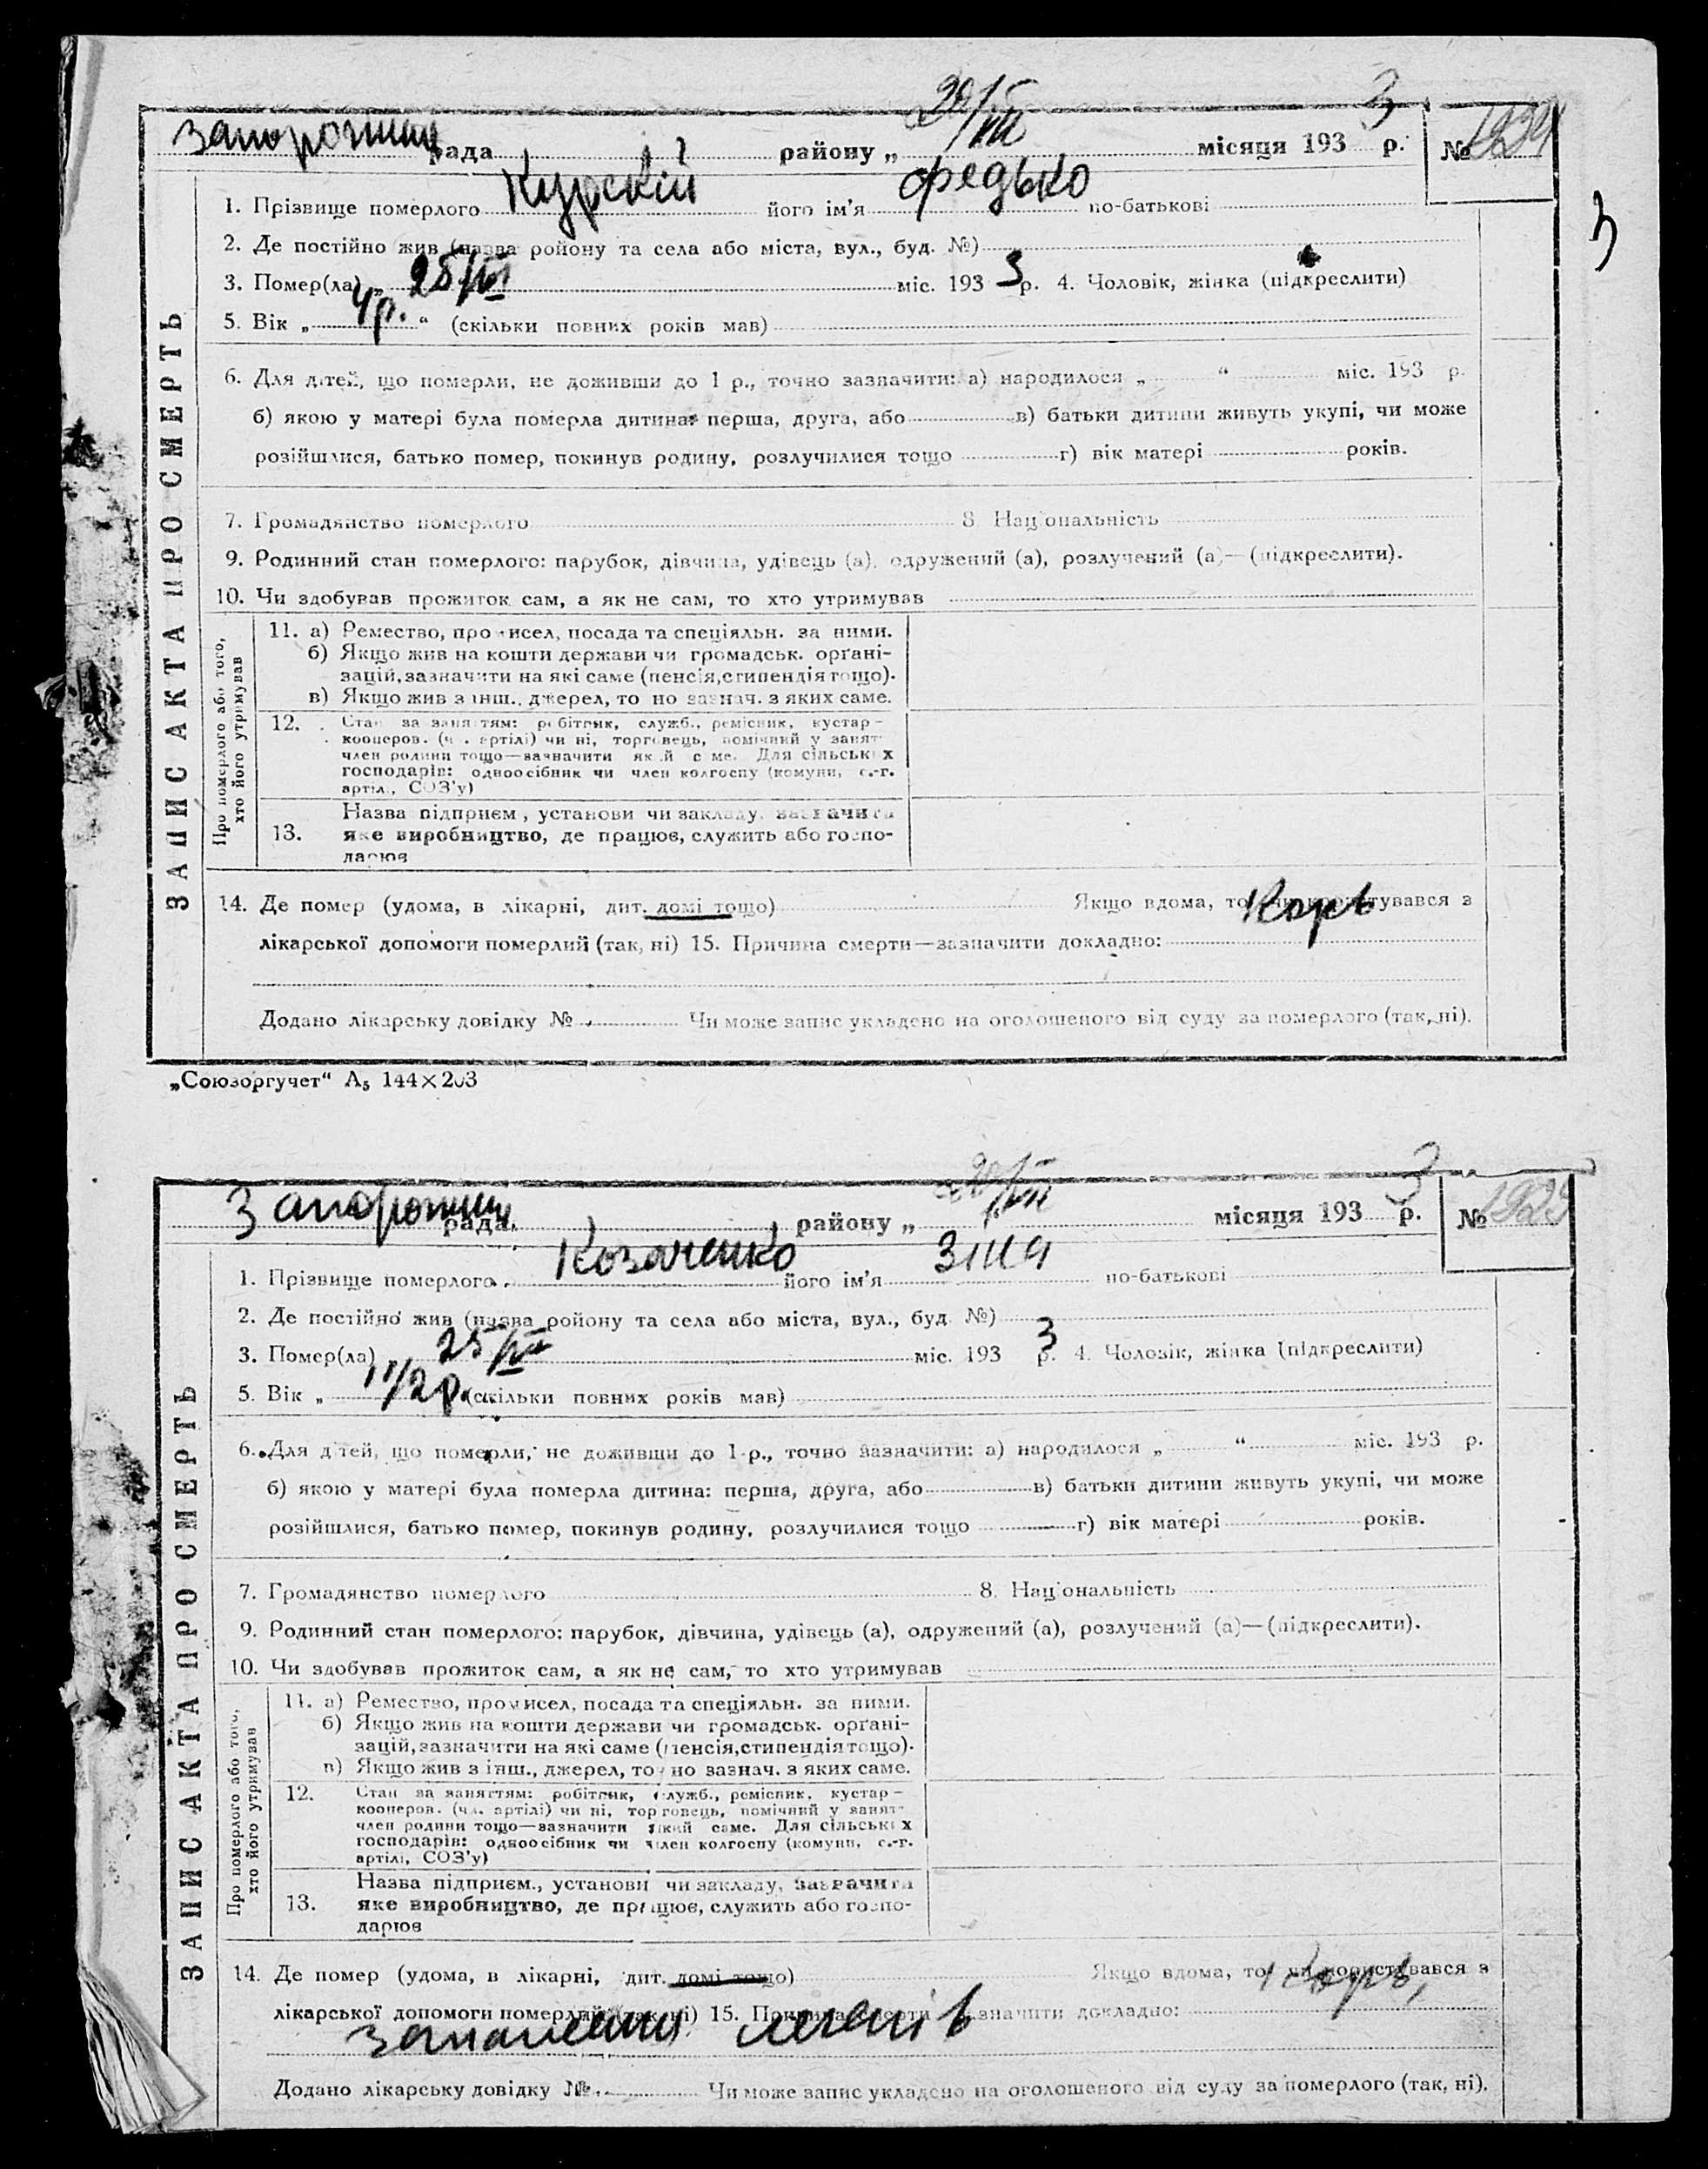 ЗАПИС АКТА ПРО СМЕРТЬ
рада району „ 193 3 р. місяця №
1. Прізвище померлого Курскій його ім'я Федько по-батькові
2. Де постійно жив (назва ройону та села або міста, вул., буд. №)
3. Помер(ла) „ 25/VI міс. 193 3 р. 4. Чоловік, жінка (підкреслити)
5. Вік „ 4р. “ (скільки повних років мав)
6. Для дітей, що померли, не доживши до 1 р., точно зазначити: а) народилося „ “ міс. 193 р.
б) якою у матері була померла дитина: перша, друга, або в) батьки дитини живуть укупі, чи може
розійшлися, батько помер, покинув родину, розлучилися тощо г) вік матері років.
7. Громадянство померлого 8. Національність
9. Родинний стан померлого: парубок, дівчина, удівець (а), одружений (а), розлучений (а)—(підкреслити).
10. Чи здобував прожиток сам, а як не сам, то хто утримував
Про померлого або того,
хто його утримував
11. а) Ремество, промисел, посада та спеціяльн. за ними.
б) Якщо жив на кошти держави чи громадськ. орґані-
зацій, зазначити на які саме (пенсія, стипендія тощо).
в) Якщо жив з інш., джерел, то но зазнач. з яких саме.
12. Стан за заняттям: робітник, служб., ремісник, кустар-
кооперов. (чл. артілі) чи ні, торговець, помічний у занят-
член родини тощо—зазначити який саме. Для сільських
господарів: одноосібник чи член колгоспу (комуни, с.-г.
артілі, СОЗ'у)
13. Назва підприєм., установи чи закладу, зазначити
яке виробництво, де працює, служить або госпо-
дарює
14. Де помер (удома, в лікарні, дит. домі тощо) Якщо вдома, то чи користувався з
Корь
лікарської допомоги померлий (так, ні) 15. Причина смерти—зазначити докладно:
Додано лікарську довідку № Чи може запис укладено на оголошеного від суду за померлого (так, ні).
„Союзоргучет“ А5 144×203
ЗАПИС АКТА ПРО СМЕРТЬ
рада району „ місяця 193 3 р. №
1. Прізвище померлого Козаченко його ім'я Зіна по-батькові
2. Де постійно жив (назва ройону та села або міста, вул., буд. №)
3. Помер(ла) 25 міс. 193 3 р. 4. Чоловік, жінка (підкреслити)
5. Вік „ 1 1/2 р. (скільки повних років мав)
6. Для дітей, що померли, не доживши до 1 р., точно зазначити: а) народилося „ “ міс. 193 р.
б) якою у матері була померла дитина: перша, друга, або в) батьки дитини живуть укупі, чи може
розійшлися, батько помер, покинув родину, розлучилися тощо г) вік матері років.
7. Громадянство померлого 8. Національність
9. Родинний стан померлого: парубок, дівчина, удівець (а), одружений (а), розлучений (а)—(підкреслити).
10. Чи здобував прожиток сам, а як не сам, то хто утримував
Про померлого або того,
хто його утримував
11. а) Ремество, промисел, посада та спеціяльн. за ними.
б) Якщо жив на кошти держави чи громадськ. орґані-
зацій, зазначити на які саме (пенсія, стипендія тощо).
в) Якщо жив з інш., джерел, то но зазнач. з яких саме.
12. Стан за заняттям: робітник, служб., ремісник, кустар-
кооперов. (чл. артілі) чи ні, торговець, помічний у занят-
член родини тощо—зазначити який саме. Для сільських
господарів: одноосібник чи член колгоспу (комуни, с.-г.
артілі, СОЗ'у)
13. Назва підприєм., установи чи закладу, зазначити
яке виробництво, де працює, служить або госпо-
дарює
14. Де помер (удома, в лікарні, дит. домі тощо) Якщо вдома, то чи користувався з
Корь,
лікарської допомоги померлий (так, ні) 15. Причина смерти—зазначити докладно:
запалення легенів
Додано лікарську довідку № Чи може запис укладено на оголошеного від суду за померлого (так, ні).